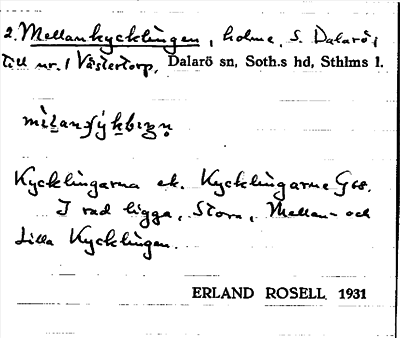 2. Mellankycklingen, holme, S. Dalarö,
till nr. 1 Västertorp, Dalarö sn, Soth.s hd, Sthlms l.
Kycklingarna ek. Kycklingarne G68.
I rad ligga, Stora, Mellan- och
Lilla Kycklingen.
ERLAND ROSELL 1931